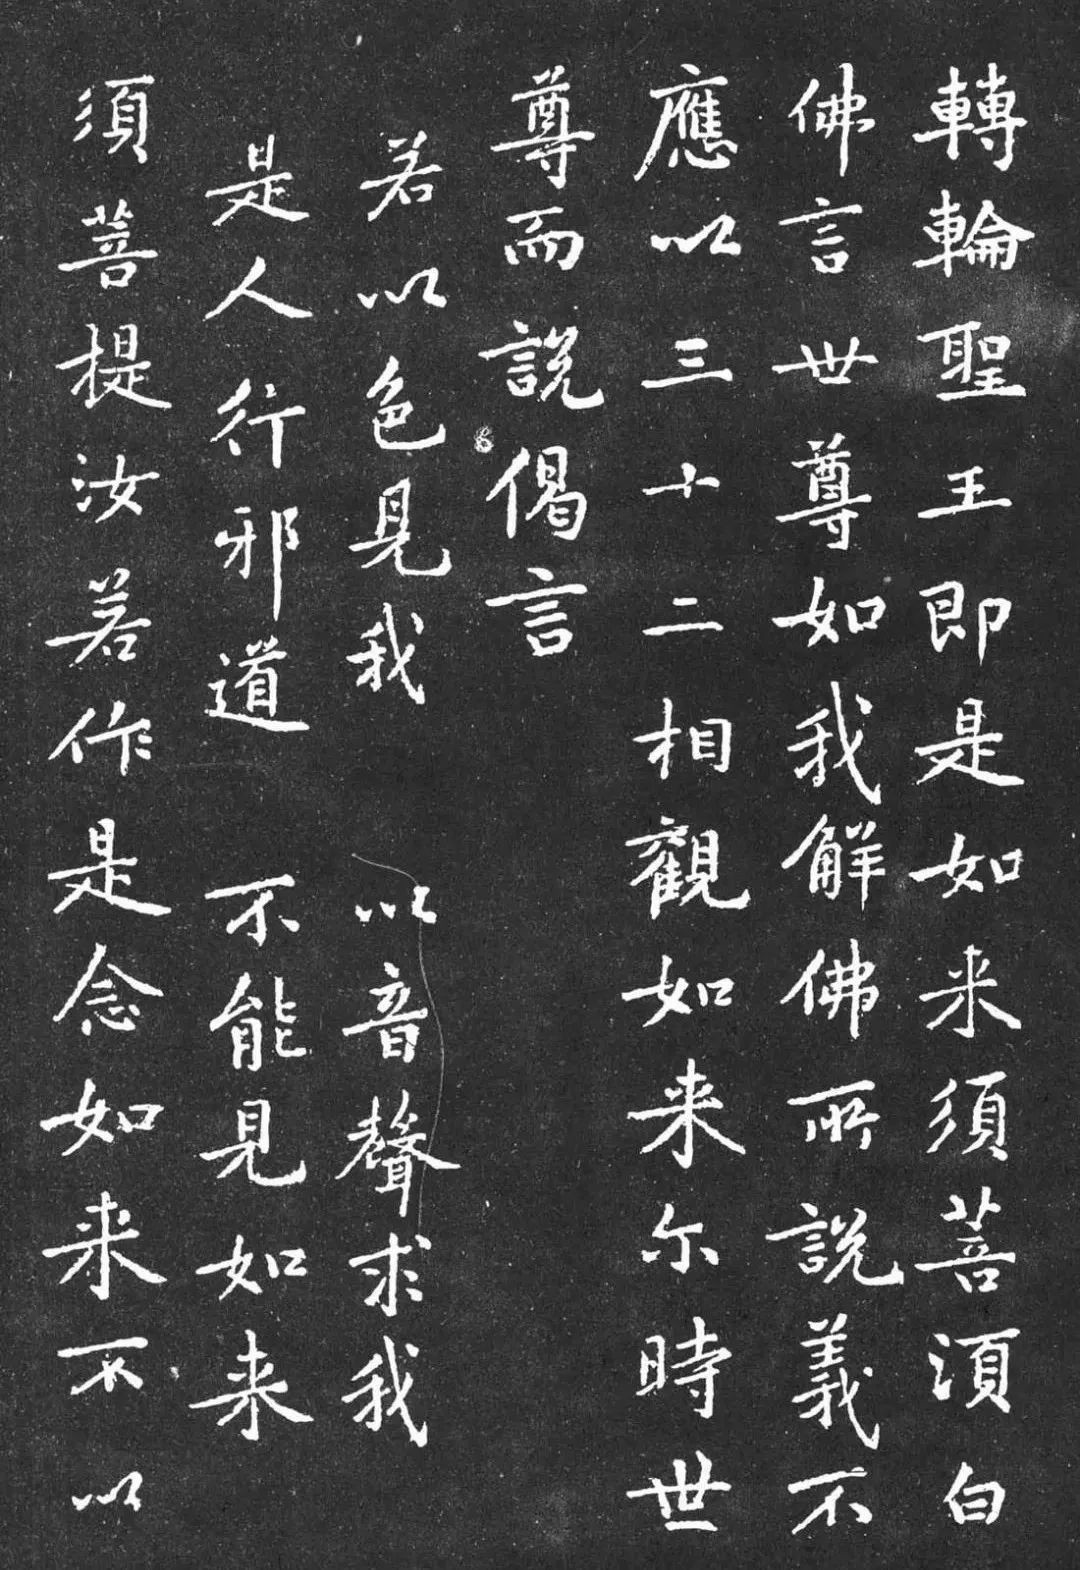 轉輪聖王即是如来須菩湏白
佛言世尊如我解佛所說義不
應以三十二相觀如来尓時世
尊而說偈言
若以色見我　以音聲求我
是人行邪道　不能見如来
須菩提汝若作是念如来不以